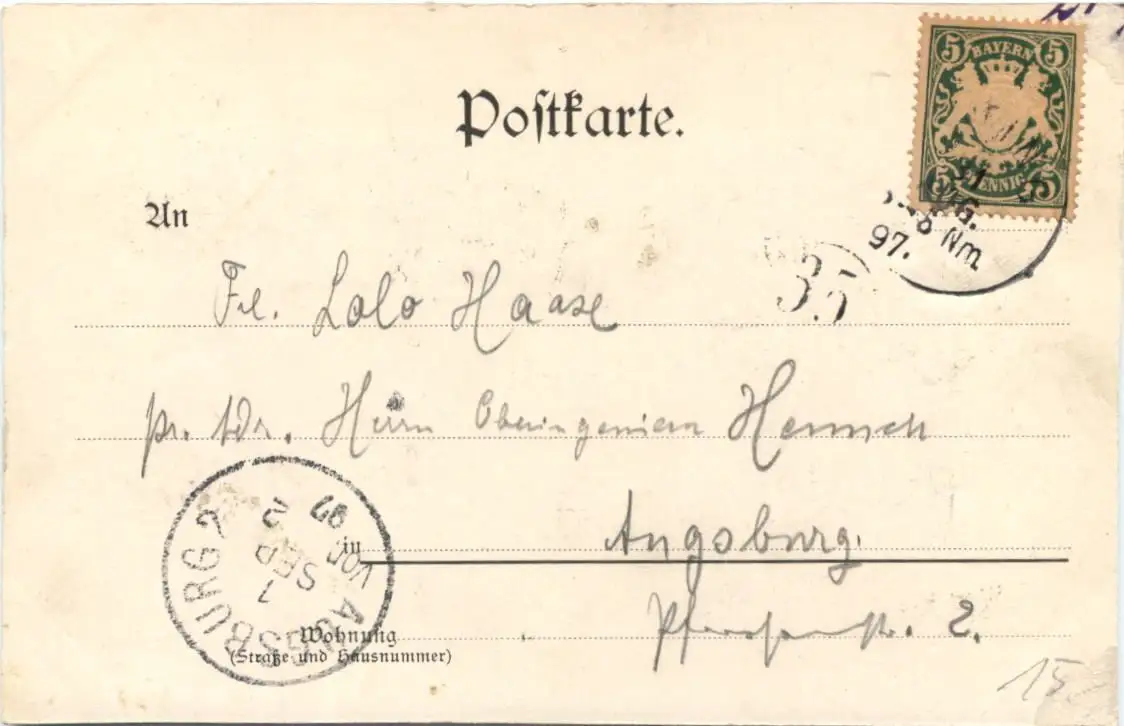 5 BAYERN 5
5 PFENNIG 5
Postkarte.
31
AUG.
Nm
97.
An
35
Frl. Lolo Haase
pr. Adr. Herrn Oberingenieur Hennch
Augsburg.
in
2.
Wohnung
(Straße und Hausnummer)
AUGSBURG 2
1
SEP
VOR
97
15